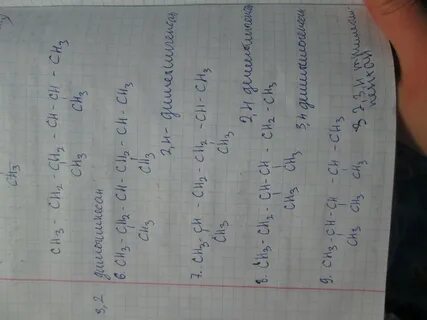 CH3
CH3 - CH2 - CH2 - CH - CH - CH3
CH3 CH3
3,2 диметилгексан
6. CH3 - CH2 - CH - CH2 - CH - CH3
CH3 CH3
2,4 - диметилгексан
7. CH3 - CH - CH2 - CH2 - CH - CH3
CH3 CH3
2,4 диметилгексан
8. CH3 - CH2 - CH - CH - CH2 - CH3
CH3 CH3
3,4 диметилгексан
9. CH3 - CH - CH - CH - CH3
CH3 CH3 CH3
2,3,4 триметил
пентан